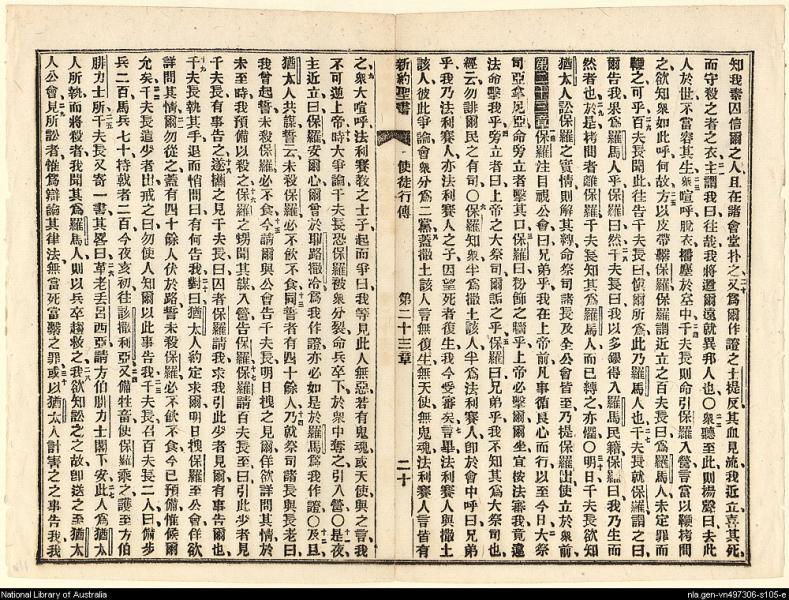 知我素囚信爾之人且在諸會堂扑之又爲爾作證之士提反其血見流我近立喜其死
而守殺之者之衣主謂我曰往哉我將遣爾遠就異邦人也〇衆聽至此則揚聲曰去此
人於世不當容其生衆喧呼脫衣播塵於空中千夫長則命引保羅入營言當以鞭拷問
之欲知衆如此呼何故方以皮帶繫保羅保羅謂近立之百夫長曰爲羅馬人未定罪而
鞭之可乎百夫長聞此往告千夫長曰愼爾所爲此乃羅馬人也千夫長就保羅謂之曰
爾告我果爲羅馬人乎保羅曰然千夫長曰我以多銀得入羅馬民籍保羅曰我乃生而
然者也於是拷問者離保羅千夫長知其爲羅馬人而已縛之亦懼〇明日千夫長欲知
猶太人訟保羅之實情則解其縛命祭司諸長及全公會皆至乃提保羅出使立於衆前
第二十三章保羅注目視公會曰兄弟乎我在上帝前凡事循良心而行以至今日大祭
司亞拿尼亞命旁立者擊其口保羅曰粉飾之牆乎上帝必擊爾爾坐宜按法審我竟違
法命擊我乎旁立者曰上帝之大祭司爾詬之乎保羅曰兄弟乎我不知其爲大祭司也
經云勿誹爾民之有司〇保羅知衆半爲撒土該人半爲法利賽人卽於會中呼曰兄弟
乎我乃法利賽人亦法利賽人之子因望死者復生我今受審矣言畢法利賽人與撒土
該人彼此爭論會衆分爲二黨蓋撒土該人言無復生無天使無鬼魂法利賽人言皆有
新約聖書 使徒行傳 第二十三章 二十
之衆大喧呼法利賽教之士子起而爭曰我等見此人無惡若有鬼魂或天使與之言我
不可逆上帝時大爭論千夫長恐保羅被衆分裂命兵卒下於衆中奪之引入營〇是夜
主近立曰保羅安爾心爾曾於耶路撒冷爲我作證亦必如是於羅馬爲我作證〇及旦
猶太人共謀誓云未殺保羅必不飲不食同誓者有四十餘人乃就祭司諸長與長老曰
我曾起誓未殺保羅必不食今請爾與公會告千夫長明日拽之見爾佯欲詳問其情於
未至時我預備以殺之保羅之甥聞其謀入營告保羅保羅請百夫長至曰引此少者見
千夫長有事告之遂攜之見千夫長曰囚者保羅請我求我引此少者見爾有事告爾也
千夫長執其手退而悄問曰有何告我對曰猶太人約定求爾明日拽保羅至公會佯欲
詳問其情爾勿從之蓋有四十餘人伏於路誓未殺保羅必不飲不食今已預備惟候爾
允矣千夫長遣少者出戒之曰勿使人知爾以此事告我千夫長召百夫長二人曰備步
兵二百馬兵七十持戟者二百今夜亥初往該撒利亞又備牲畜使保羅乘之護至方伯
腓力士所千夫長又寄一書其畧曰革老丟呂西亞請方伯腓力士閣下安此人爲猶太
人所執而將殺者我聞其爲羅馬人則以兵卒趨救之我欲知訟之之故卽送之至猶太
人公會見所訟者惟爲辯論其律法無當死當繫之罪或以猶太人計害之之事告我我
National Library of Australia
nla.gen-vn497306-s105-e